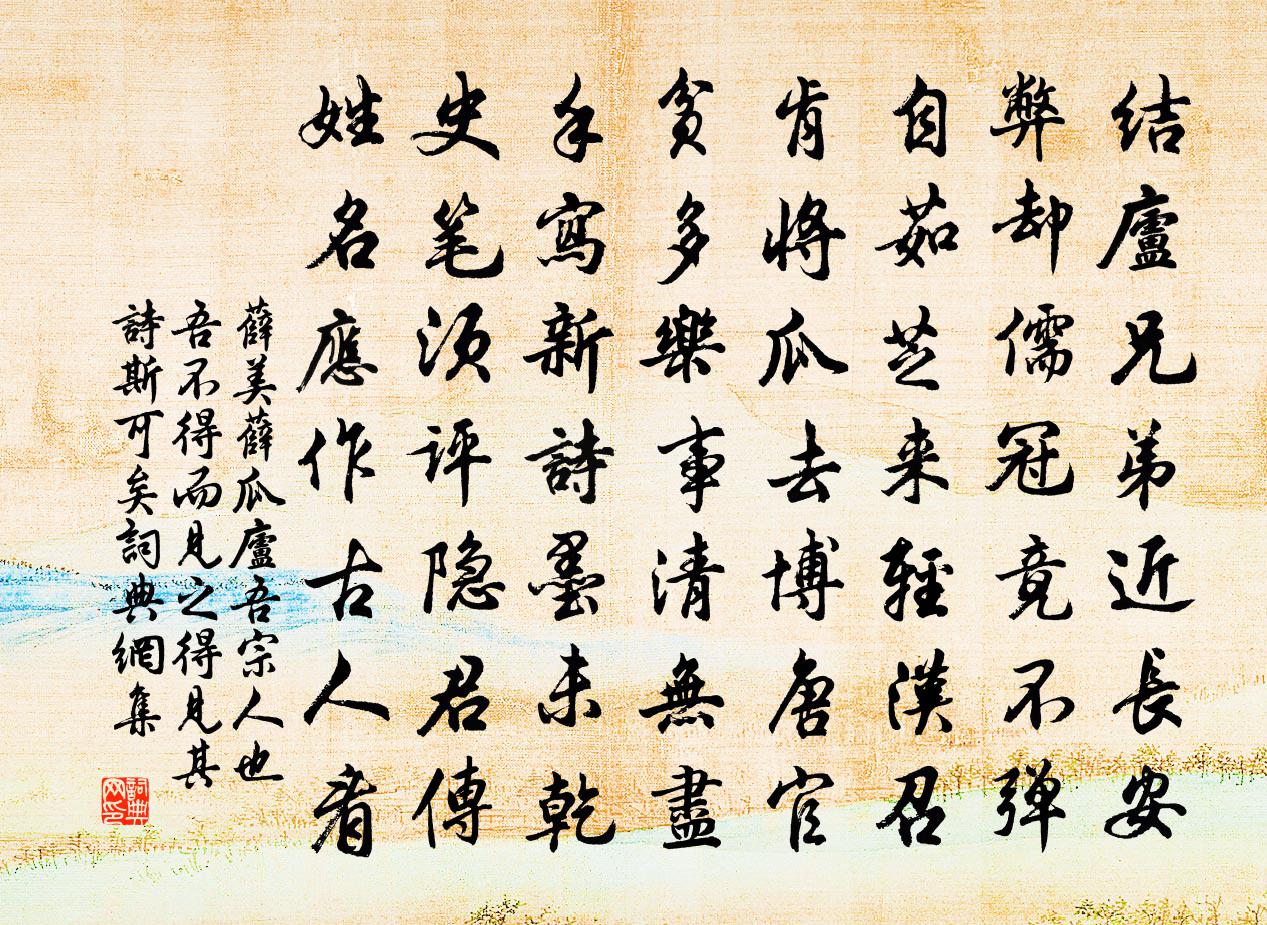 结廬兄弟近長安
弊却儒冠竟不弹
自茹芝来輕漢召
肯將瓜去博唐官
貧多樂事清無盡
手寫新詩墨未乾
史笔须评隐君傳
姓名應作古人看
薛美薛瓜廬吾宗人也
吾不得而見之得見其
詩斯可矣詞典網集
詞典网印